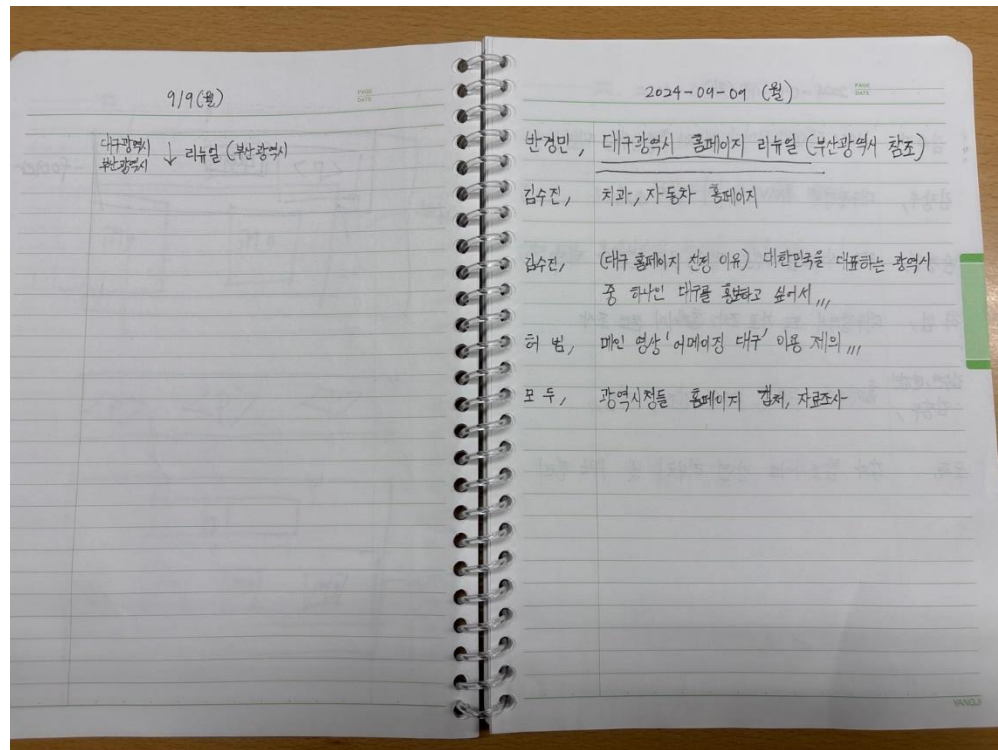 9/9(월)
대구광역시
부산광역시 ↓ 리뉴얼 (부산광역시
PAGE
DATE
2024-09-09 (월)
PAGE
DATE
반경민, 대구광역시 홈페이지 리뉴얼 (부산광역시 참조)
김수진, 치과, 자동차 홈페이지
김수진, (대구 홈페이지 선정 이유) 대한민국을 대표하는 광역시
중 하나인 대구를 홍보하고 싶어서,,,
허 범, 메인 영상 '어메이징 대구' 이용 제의,,,
모 두, 광역시청들 홈페이지 캡처, 자료조사